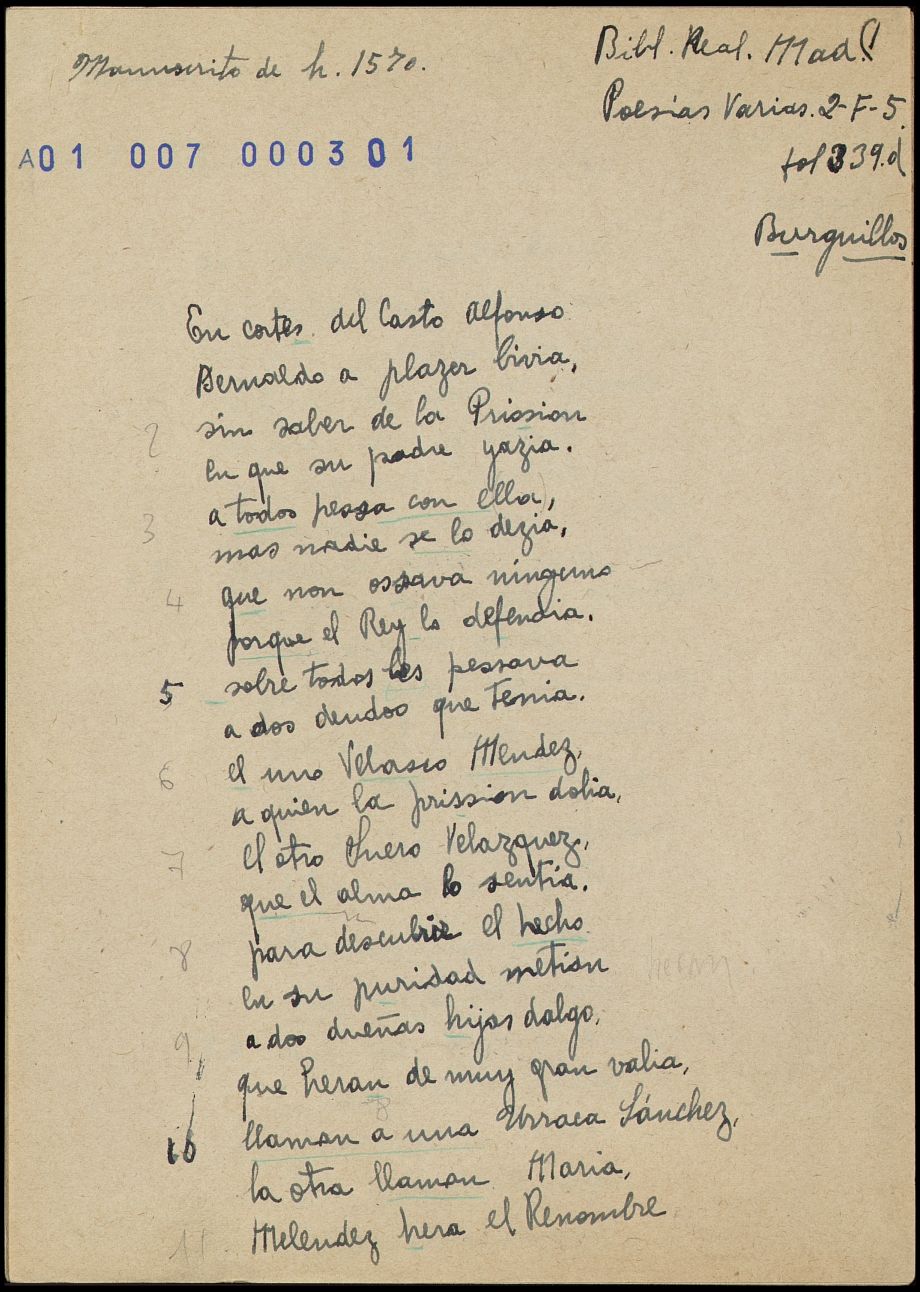 Manuscrito de h. 1570.
Bibl. Real. Mad.
Poesías Varias. 2-F-5.
fol 339.d
A01 007 0003 01
Burguillos
En cortes del Casto Alfonso
Bernaldo a plazer bivia,
2 sin saber de la Prission
en que su padre yazia.
3 a todos pessa con ella,
mas nadie se lo dezia,
4 que non ossava ninguno
porque el Rey lo defendia.
5 sobre todos les pessava
a dos deudos que tenia.
6 el uno Velasco Mendez,
a quien la prission dolia,
7 el otro Suero Velazquez,
que el alma lo sentia.
8 para descubrir el hecho
en su puridad metian
9 a dos dueñas hijas dalgo,
que heran de muy gran valia,
10 llaman a una Urraca Sánchez,
la otra llaman Maria,
11 Melendez hera el Renombre